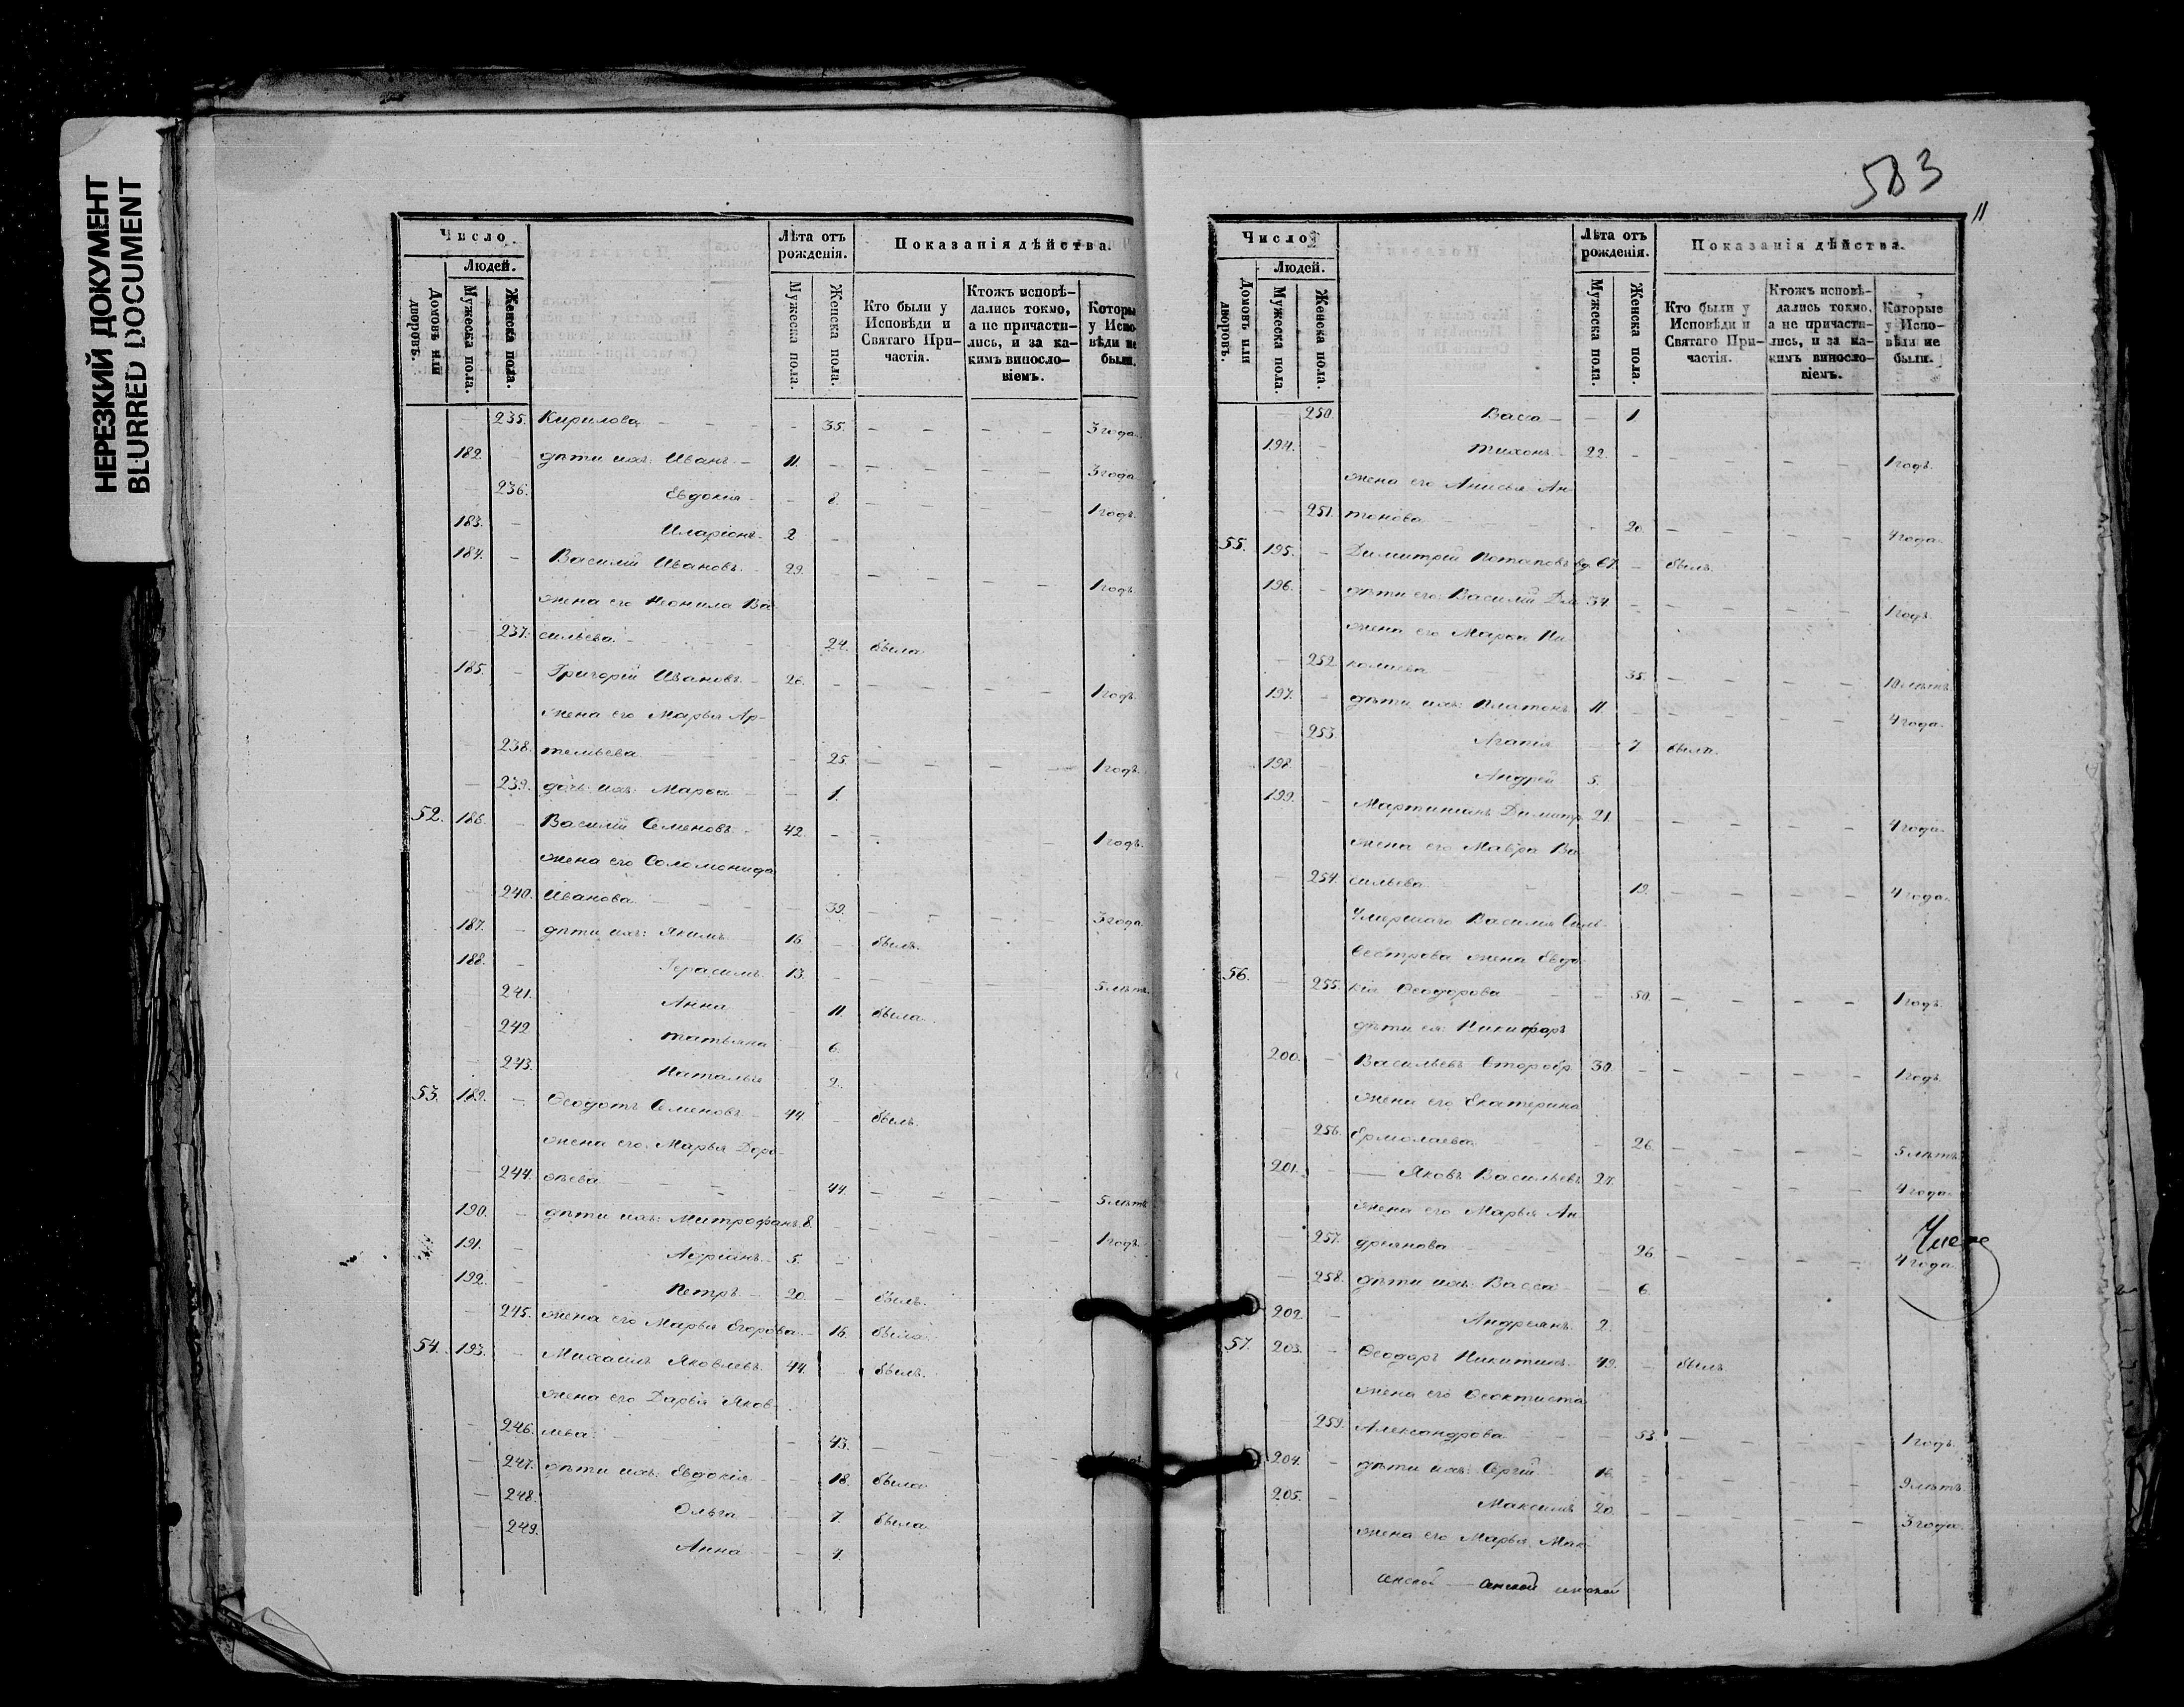 НЕРЕЗКИЙ ДОКУМЕНТ
BLURRED DOCUMENT
Число
Людей.
Домовъ или дворовъ.
Мужеска пола.
Женска пола.
Лѣта отъ рожденія.
Мужеска пола.
Женска пола.
Показанія дѣйства.
Кто были у Исповѣди и Святаго При-частія.
Ктожъ исповѣ-дались токмо, а не причасти-лись, и за ка-кимъ виносло-віемъ.
Которые у Испо-вѣди не были.
235. Кирилова - - - 35. - - - - 3 года.
182. - дѣти ихъ: Иванъ. - 11. - - - - - 3 года
236. Евдокія - - 8. - - - - 1 годъ.
183. - Иларіонъ. - 2. -
184. - Василій Ивановъ. - 29. - - - - - 1 годъ.
жена его Неонила Ва
237. сильева. - - - 24. была.
185. - Григорій Ивановъ. - 26. - - - - - 1 годъ.
жена его Марья Ар-
238. темьева - - - 25. - - - - 1 годъ.
239. дочь ихъ: Марѳа - - 1.
52. 186. - Василій Семеновъ. - 42. - - - - - 1 годъ.
жена его Соломонида
240. Иванова - - - 39. - - - - 3 года.
187. - дѣти ихъ: Якимъ. - 16. - былъ.
188. - Герасимъ. 13. - - - - - 5 лѣтъ.
241. Анна - 11. была.
242. Татьяна - 6.
243. Наталья - 2.
53. 189. - Ѳеодотъ Семеновъ. - 44. - былъ.
жена его Марья Доро-
244. ѳѣева - - - 44. - - - - 5 лѣтъ
190. - дѣти ихъ: Митрофанъ. 8. - - - - - 1 годъ.
191. - Адріанъ. - 5. -
192. - Петръ. - 20. - былъ.
245. жена его Марья Егорова. - 16. была.
54. 193. - Михаилъ Яковлевъ. 44. - былъ.
жена его Дарья Яков-
246. лева - - - 43. - - - -
247. дѣти ихъ: Евдокія - - 18. была
248. Ольга - - 7. была.
249. Анна - - 4.
583
11
Число
Людей.
Домовъ или дворовъ.
Мужеска пола.
Женска пола.
Лѣта отъ рожденія.
Мужеска пола.
Женска пола.
Показанія дѣйства.
Кто были у Исповѣди и Святаго При-частія.
Ктожъ исповѣ-дались токмо, а не причасти-лись, и за ка-кимъ виносло-віемъ.
Которые у Испо-вѣди не были.
250. Васса - - 1.
194. - Тихонъ - 22. - - - - - 1 годъ.
жена его Анисья Ан-
251. тонова - - - 20. - - - - 4 года.
55. 195. - Димитрій Потаповъ вд. 67. - былъ.
196. - дѣти его: Василій Дм. 34. - - - - - 1 годъ.
жена его Марѳа Ни-
252. колаева - - - 35. - - - - 10 лѣтъ.
197. - дѣти ихъ: Платонъ. 11. - - - - - 4 года.
253. Агапія - 7. была.
198. - Андрей 5.
199. - Мартиніанъ Димитр. 21. - - - - - 4 года.
жена его Мавра Ва-
254. сильева - - - 19. - - - - 4 года.
Умершаго Василія Силь-
вестрова жена Евдо-
56. 255. кія Ѳеодорова - - - 50. - - - - 1 годъ.
дѣти ея: Никифоръ
200. - Васильевъ - 30. - - - - - 1 годъ.
жена его Екатерина
256. Ермолаева - - - 26. - - - - 5 лѣтъ.
201. - Яковъ Васильевъ 27. - - - - - 4 года.
жена его Марья Ан-
257. дреянова - - - 26. - - - - 4 года.
258. дѣти ихъ: Васса - - 6.
202. - Андреянъ. 2. -
57. 203. - Ѳеодоръ Никитинъ. - 49. - былъ.
жена его Ѳеоктиста
259. Александрова - - - 53. - - - - 1 годъ.
204. - дѣти ихъ: Сергій 16. - - - - - 9 лѣтъ.
205. - Максимъ 20. - - - - - 3 года.
жена его Марья Мак-